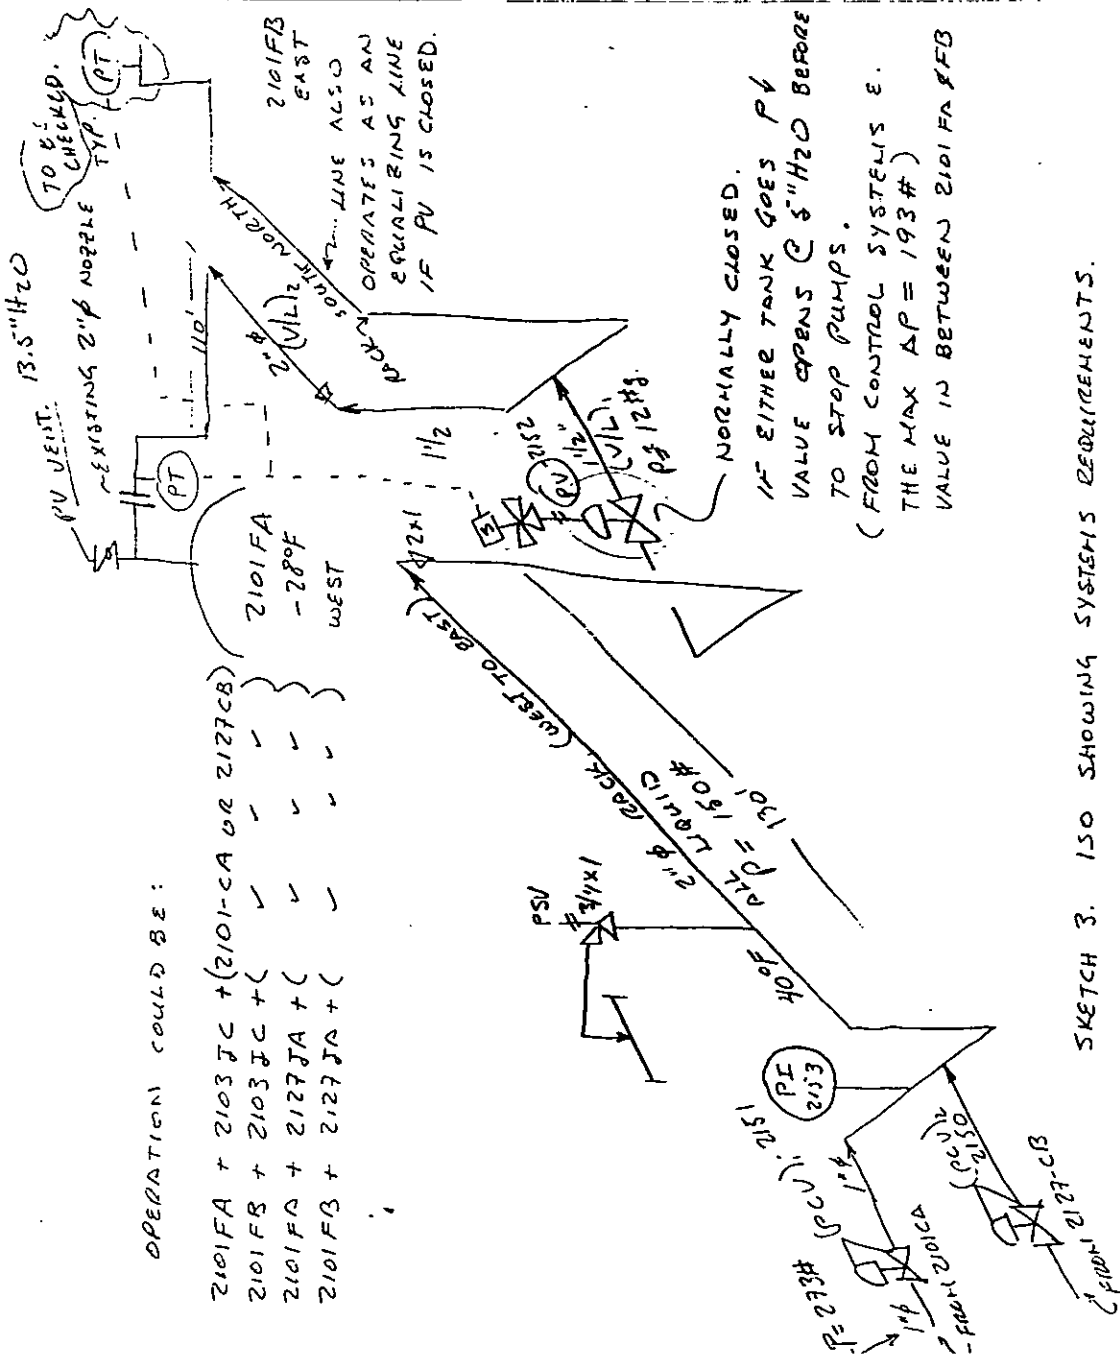 OPERATION COULD BE:
2101FA + 2103JC + (2101-CA OR 2127CB)
2101FB + 2103JC + ( " " " )
2101FA + 2127JA + ( " " " )
2101FB + 2127JA + ( " " " )
PV VENT. 13.5"H2O
~EXISTING 2"φ NOZZLE
TO BE
CHECKED.
TYP.
PT
PT
110'
2101FA
-28°F
WEST
2101FB
EAST
LINE ALSO
OPERATES AS AN
EQUALIZING LINE
IF PV IS CLOSED.
RACK SOUTH NORTH
2"φ
(V/L)2
1 1/2
2x1
S
PV
2152
1 1/2"
(V/L)1
12#g.
NORMALLY CLOSED.
IF EITHER TANK GOES P↓
VALUE OPENS @ 5"H2O BEFORE
TO STOP PUMPS.
(FROM CONTROL SYSTEMS E.
THE MAX ΔP = 193#)
VALUE IN BETWEEN 2101FA & FB
2"φ RACK (WEST TO EAST)
ALL LIQUID
P = 150#
130'
40°F
PSV
3/4x1
PI
2153
P=273#
(PCV)1 2151
1"φ
1"φ
FROM 2101CA
(PCV)2
-2150
FROM 2127-CB
SKETCH 3. ISO SHOWING SYSTEMS REQUIREMENTS.